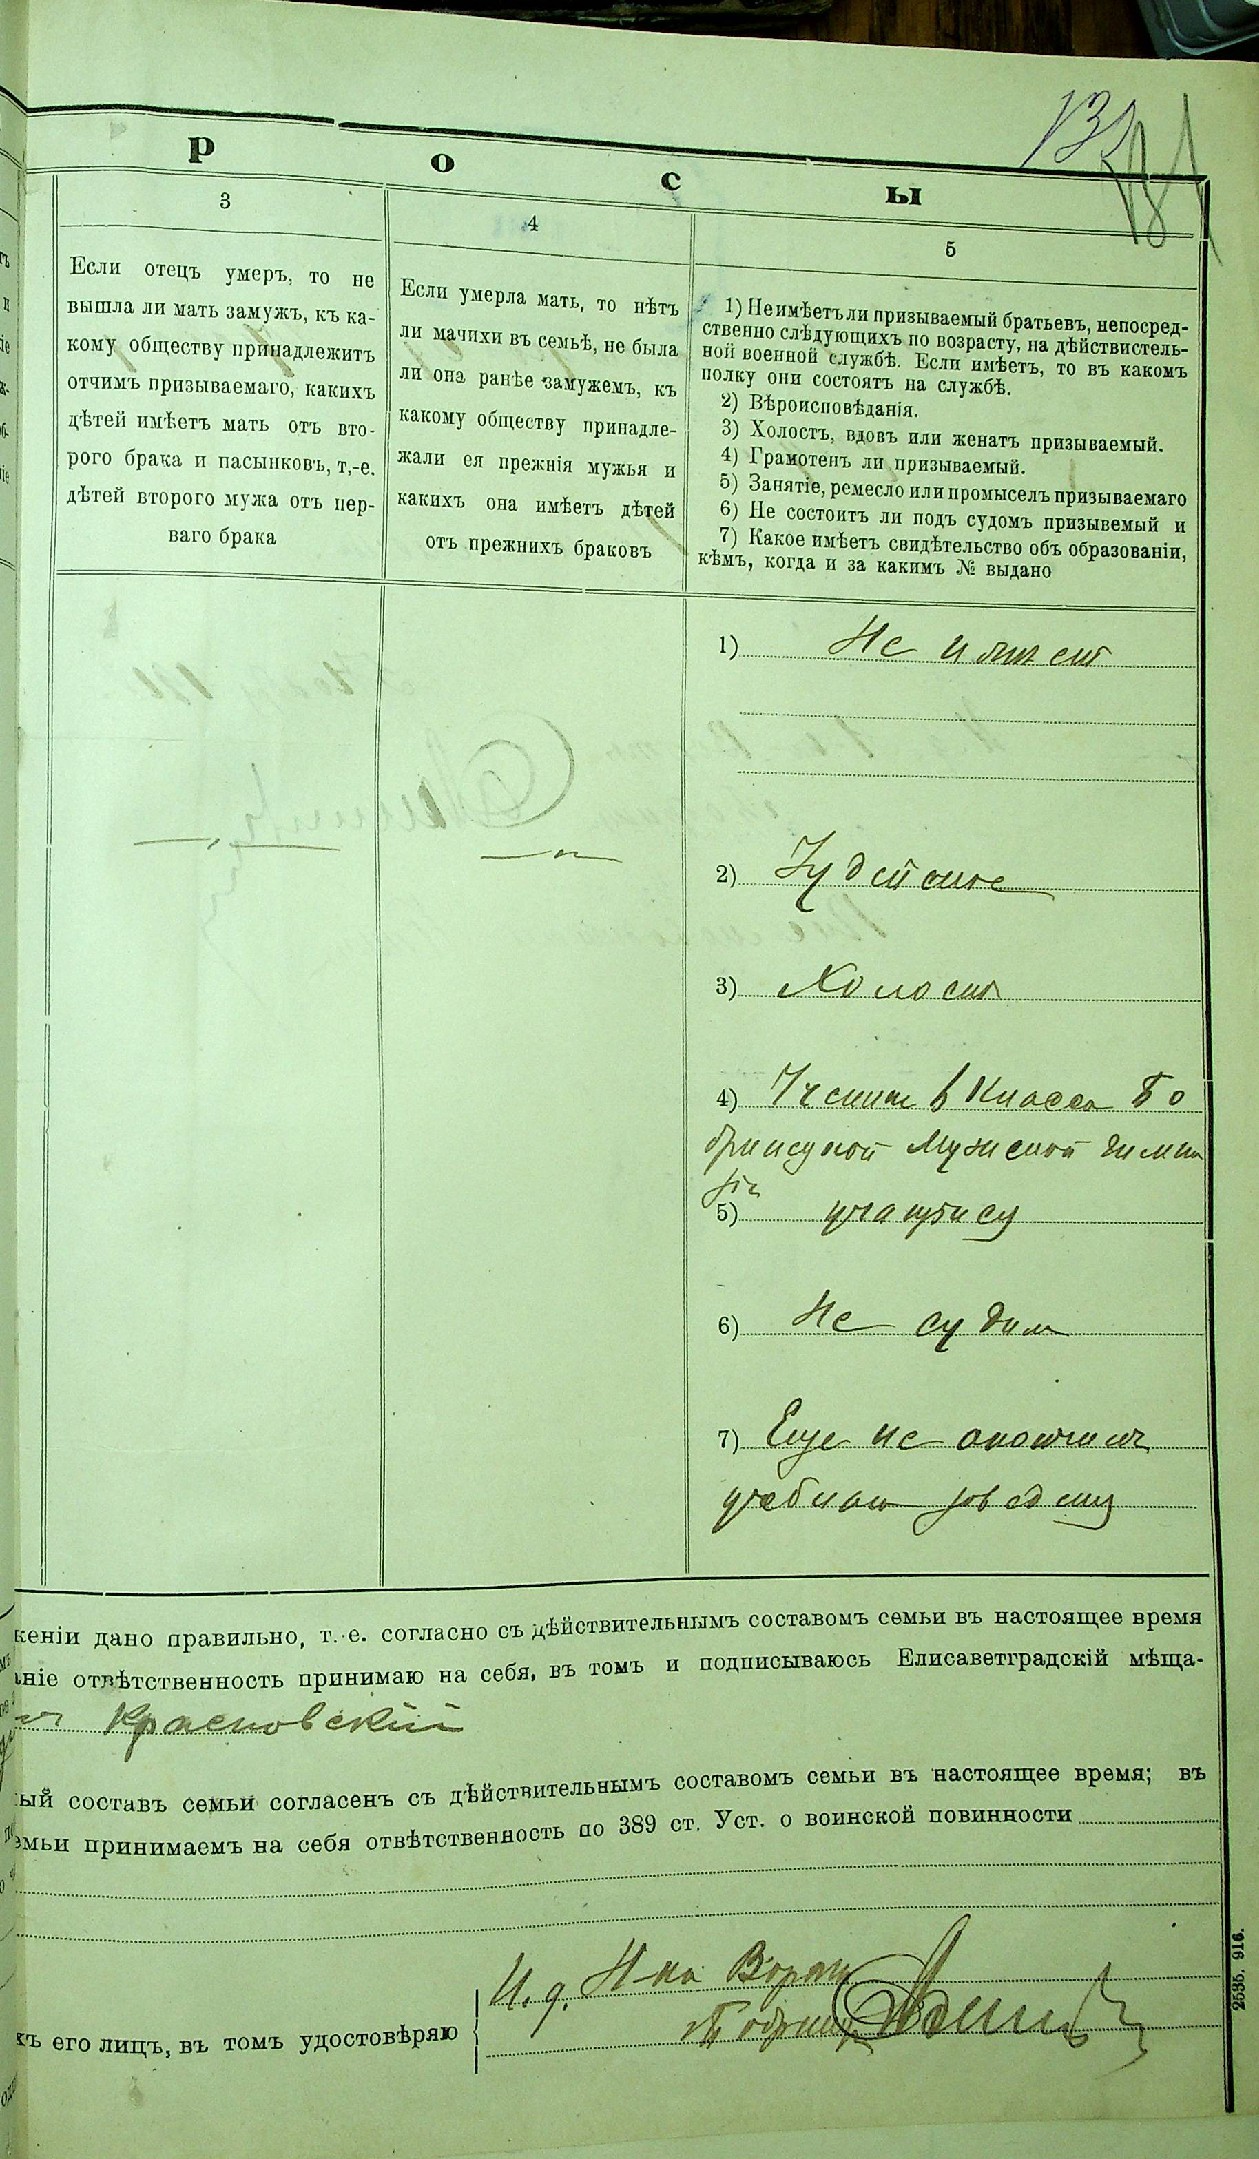 131
р о с ы
3
Если отецъ умеръ, то не
вышла ли мать замужъ, къ ка-
кому обществу принадлежитъ
отчимъ призываемаго, какихъ
дѣтей имѣетъ мать отъ вто-
рого брака и пасынковъ, т,-е.
дѣтей второго мужа отъ пер-
ваго брака
4
Если умерла мать, то нѣтъ
ли мачихи въ семьѣ, не была
ли она ранѣе замужемъ, къ
какому обществу принадле-
жали ея прежнія мужья и
какихъ она имѣетъ дѣтей
отъ прежнихъ браковъ
5
1) Не имѣетъ ли призываемый братьевъ, непосред-
ственно слѣдующихъ по возрасту, на дѣйствистель-
ной военной службѣ. Если имѣетъ, то въ какомъ
полку они состоятъ на службѣ.
2) Вѣроисповѣданія.
3) Холостъ, вдовъ или женатъ призываемый.
4) Грамотенъ ли призываемый.
5) Занятіе, ремесло или промыселъ призываемаго
6) Не состоитъ ли подъ судомъ призывемый и
7) Какое имѣетъ свидѣтельство объ образованіи,
кѣмъ, когда и за какимъ № выдано
1) Не имѣетъ
2) Іудейское
3) Холостъ
4) Ученик 6 класса Бо
бринецкой Мужской гимна
зіи
5) учащійся
6) Не судим
7) Еще не окончилъ
учебнаго
кеніи дано правильно, т.-е. согласно съ дѣйствительнымъ составомъ семьи въ настоящее время
аніе отвѣтственность принимаю на себя, въ томъ и подписываюсь Елисаветградскій мѣща-
Красновскій
ный составъ семьи согласенъ съ дѣйствительнымъ составомъ семьи въ настоящее время; въ
емьи принимаемъ на себя отвѣтственность по 389 ст. Уст. о воинской повинности
И. д. Н-ка
къ его лицъ, въ томъ удостовѣряю
2535. 916.